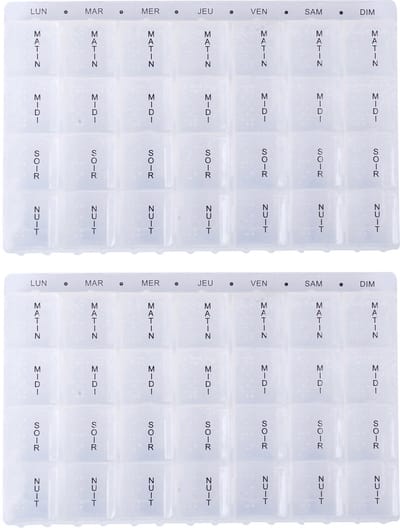 LUN • MAR • MER • JEU • VEN • SAM • DIM
MATIN MATIN MATIN MATIN MATIN MATIN MATIN
MIDI MIDI MIDI MIDI MIDI MIDI MIDI
SOIR SOIR SOIR SOIR SOIR SOIR SOIR
NUIT NUIT NUIT NUIT NUIT NUIT NUIT
LUN • MAR • MER • JEU • VEN • SAM • DIM
MATIN MATIN MATIN MATIN MATIN MATIN MATIN
MIDI MIDI MIDI MIDI MIDI MIDI MIDI
SOIR SOIR SOIR SOIR SOIR SOIR SOIR
NUIT NUIT NUIT NUIT NUIT NUIT NUIT